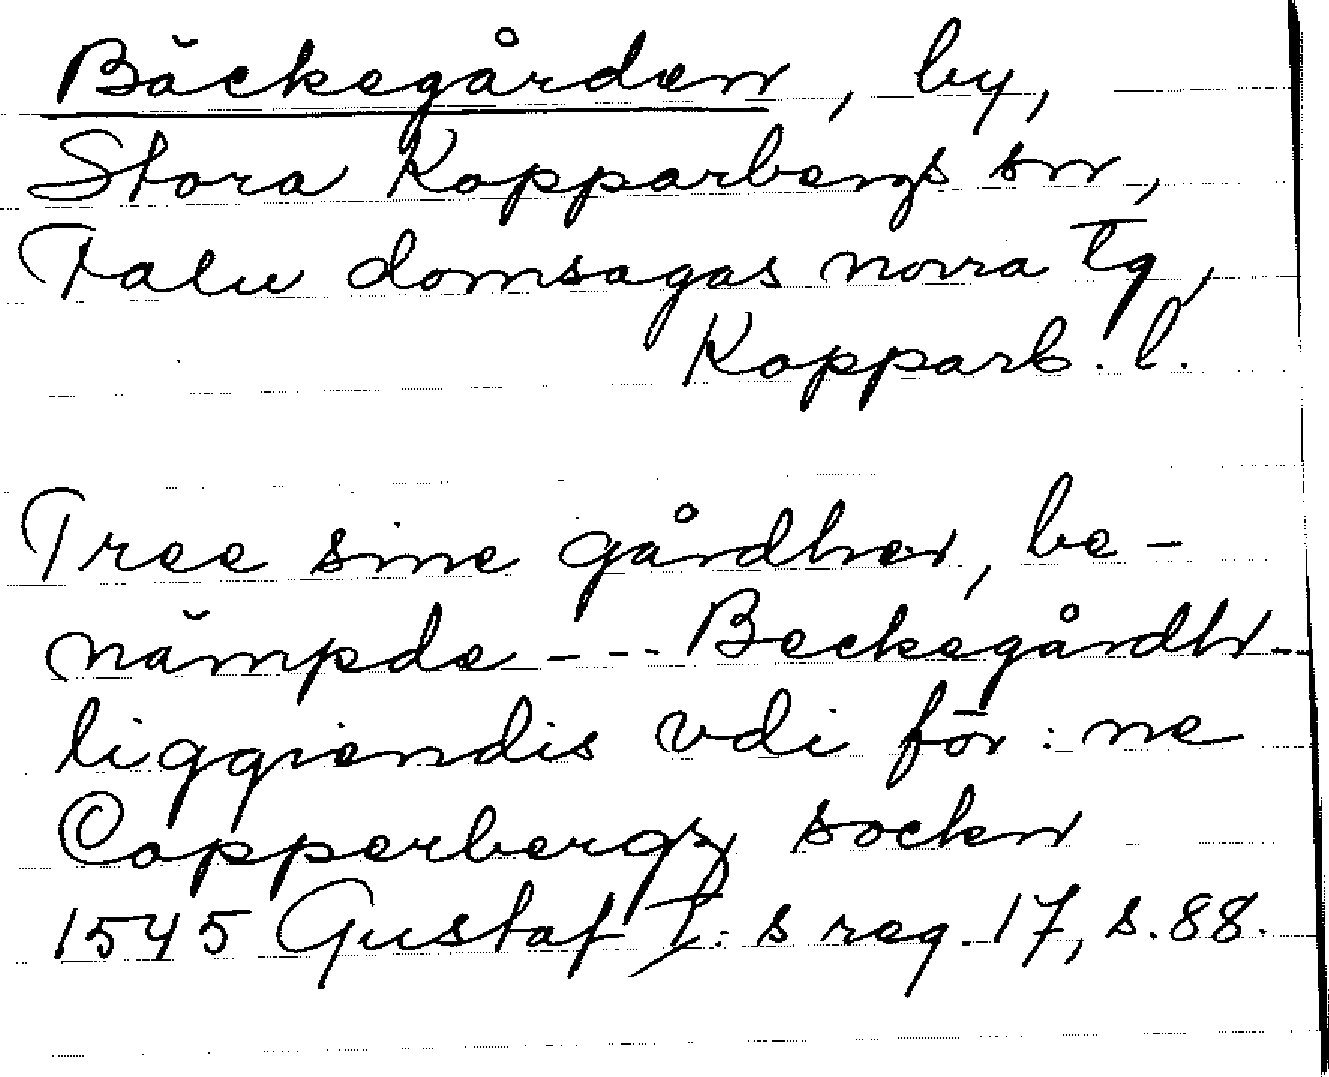 Bäckegården, by,
Stora Kopparbergs sn,
Falu domsagas norra tg,
Kopparb. l.
Tree sine gårdher, be-
nämpde - - - Beckegårdh - -
liggiendis vdi för:ne
Copperbergz sockn
1545 Gustaf I:s reg. 17, s. 88.